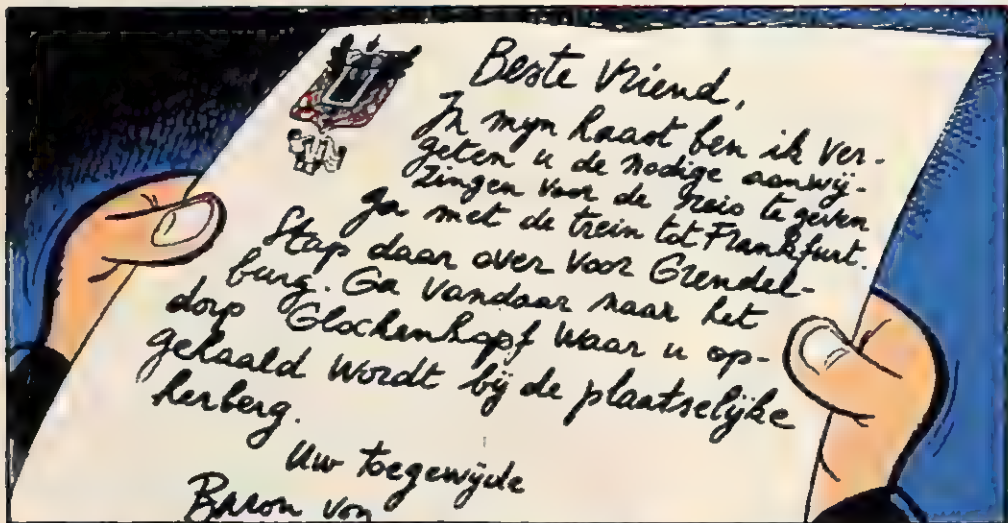 Beste Vriend,
In myn haast ben ik ver-
geten u de nodige aanwij-
zingen voor de reis te geven
Ga met de trein tot Frankfurt.
Stap daar over voor Grendel-
burg. Ga vandaar naar het
dorp Glockenkopf waar u op-
gehaald wordt bij de plaatselijke
herberg.
Uw toegewijde
Baron von